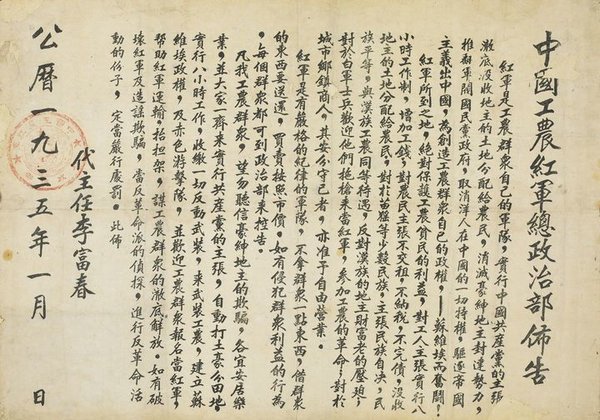 中國工農紅軍總政治部佈告
紅軍是工農群衆自己的軍隊，實行中國共產黨的主張
澈底沒收地主的土地分配給農民，消滅豪紳地主封建勢力
推翻軍閥國民黨政府，取消洋人在中國的一切特權，驅逐帝國
主義出中國，為創造工農群衆自己的政權，——蘇維埃而奮鬥！
紅軍所到之地，絕對保護工農貧民的利益，對工人主張實行八
小時工作制，增加工錢，對農民主張不交租，不納稅，不完債，沒收
地主的土地分配給農民，對於苗傜等少數民族，主張民族自決，民
族平等，與漢族工農同等待遇，反對漢族的地主財富老的壓迫，
對於白軍士兵歡迎他們拖槍來當紅軍，參加工農的革命，對於
城市鄉鎮商人，其安分守己者，亦准予自由營業。
紅軍是有嚴格的紀律的軍隊，不拿群衆一點東西，借群衆
的東西要送還，買賣按照市價。如有侵犯群衆利益的行為
，每個群衆都可到政治部來控告。
凡我工農群衆，望勿聽信豪紳地主的欺騙，各宜安居樂
業，並大家一齊來實行共產黨的主張，自動打土豪分田地，
實行八小時工作，收繳一切反動武裝，來武裝工農，建立蘇
維埃政權，及赤色游擊隊，並歡迎工農群衆報名當紅軍，
幫助紅軍運輸，抬担架，謀工農群衆的澈底解放。如有破
壞紅軍及造謠欺騙，當反革命派的偵探，進行反革命活
動的份子，定當嚴行處罰。此佈
代主任李富春
公曆一九三五年一月　日